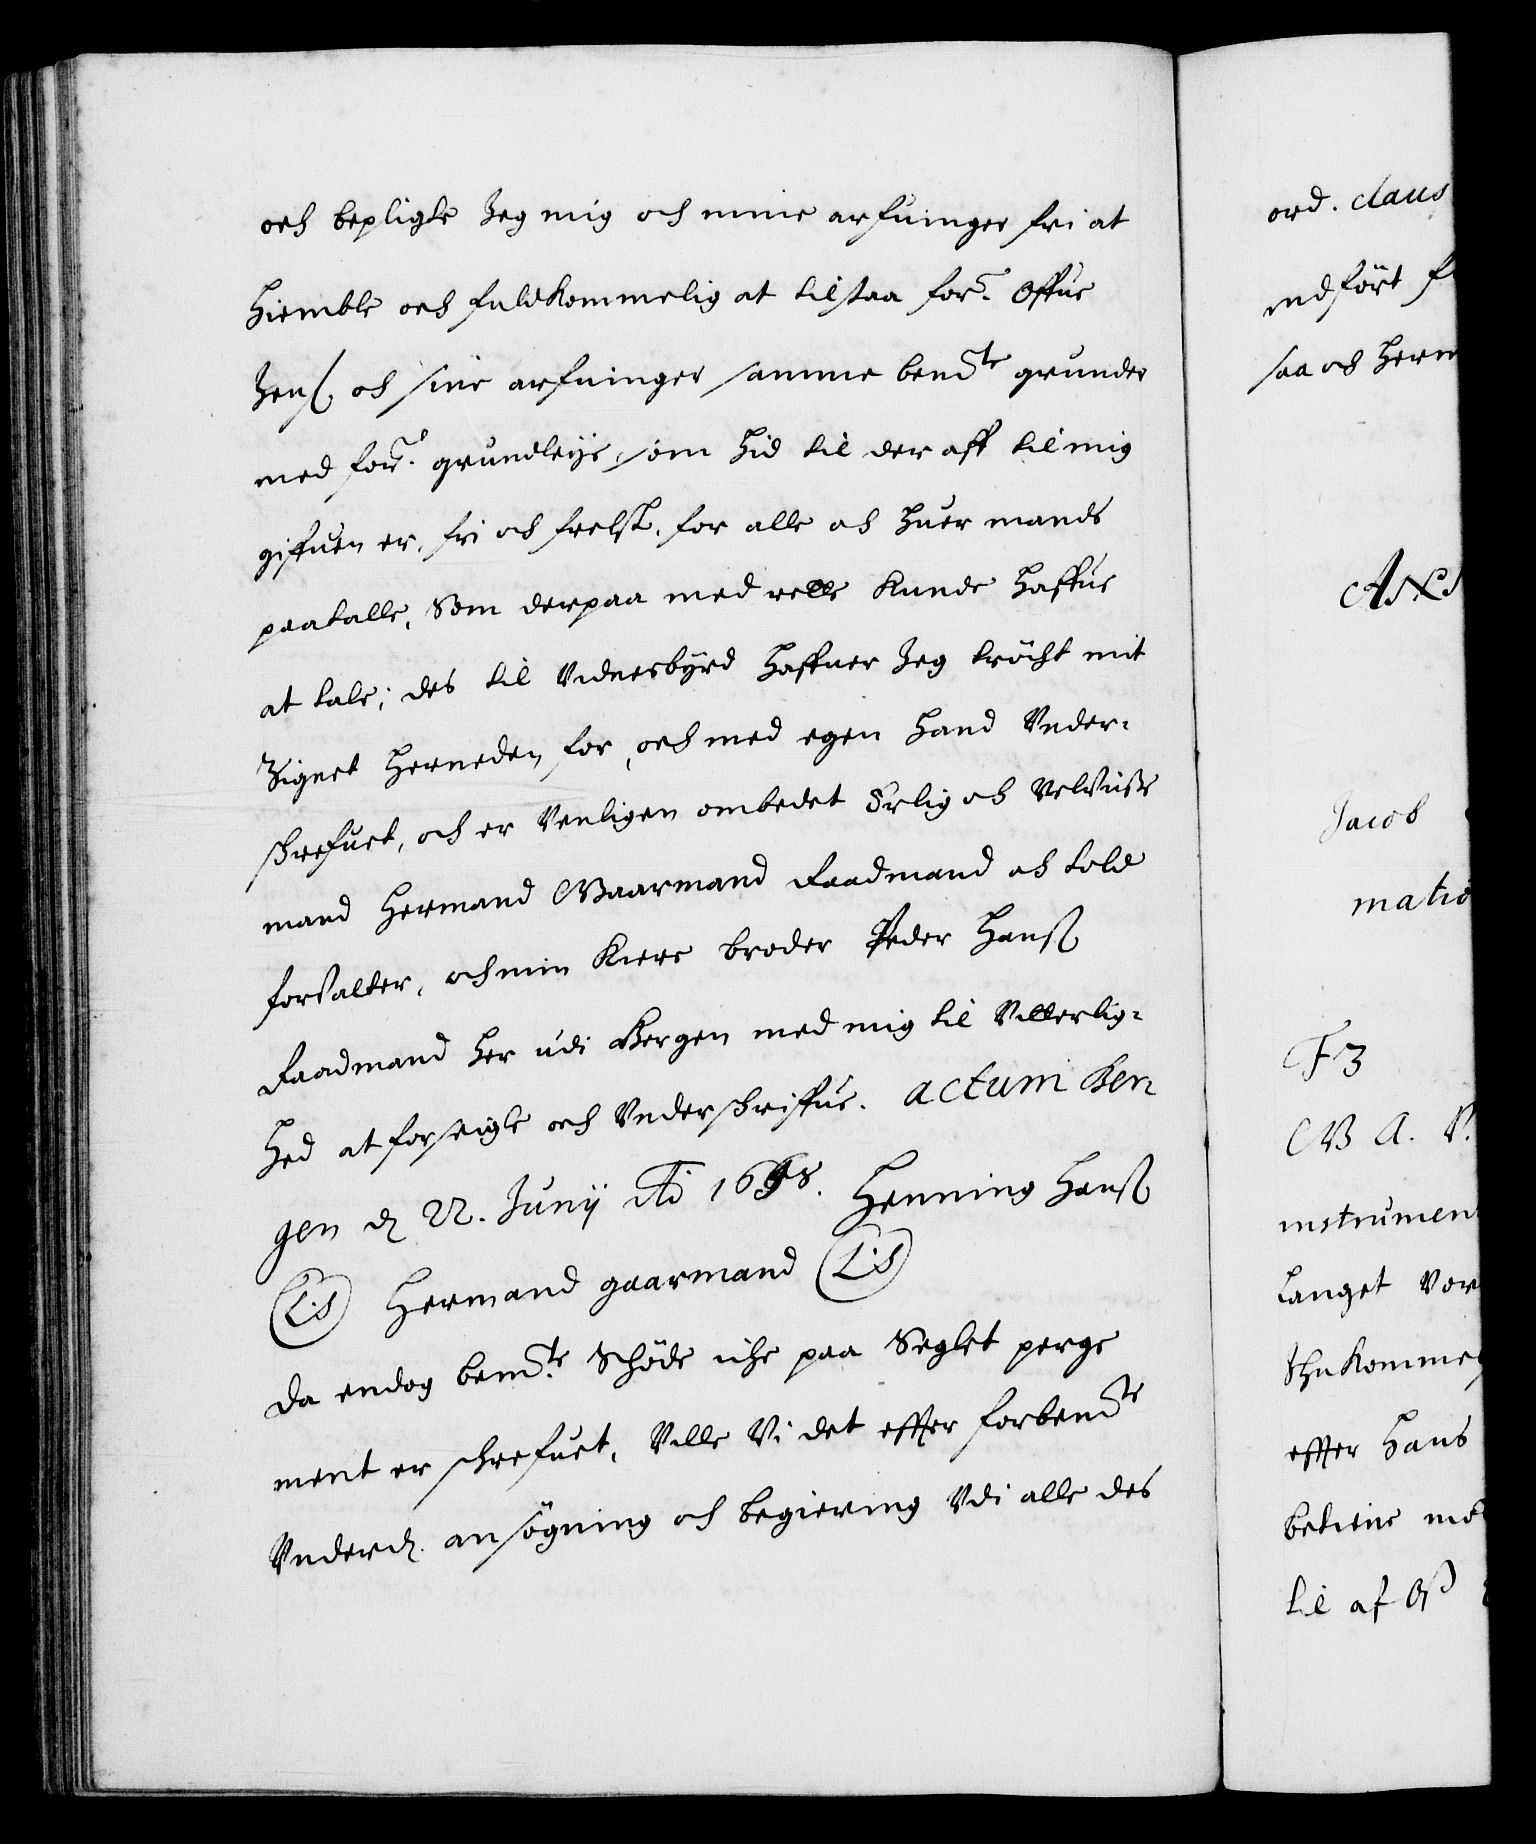 och bepligte Jeg mig och mine arfuinger fri at
Hiemble och fuldkommelig at tilstaa for:ne Offue
Jenß, och sine arfuinger samme bem:te grunder
med for:ne grundleije, som hid til der aff til mig
giffuen er, fri och frelst, for alle och huer mands
paatalle, Som derpaa med rette kunde haffue
at tale; des til Vidnesbyrd haffuer Jeg tröcht mit
Zignet herneden for, och med egen Haand Vnder-
schrefuet, och er Venligen ombedet Erlig och Velviise
mand Hermand Gaarmand Raadmand och told
forvalter, och min Kiere broder Peder Hanß
Raadmand her udi Bergen med mig til Vitterlig-
hed at forseigle och Vnderschriffue. Actum Ber
gen d. 22. Junij Ao 1658. Henning Hanß
(L:S) Hermand gaarmand (L:S)
Da endog bem:te Schöde iche paa Seglet perge
ment er schrefuet, Ville Vi det effter forbem:te
Underd. ansögning och begiering Udi alle des
ord. Claus
indfört
saa och
Jacob
F3
instrumen
langet
effter hans
betiene
til af Oß